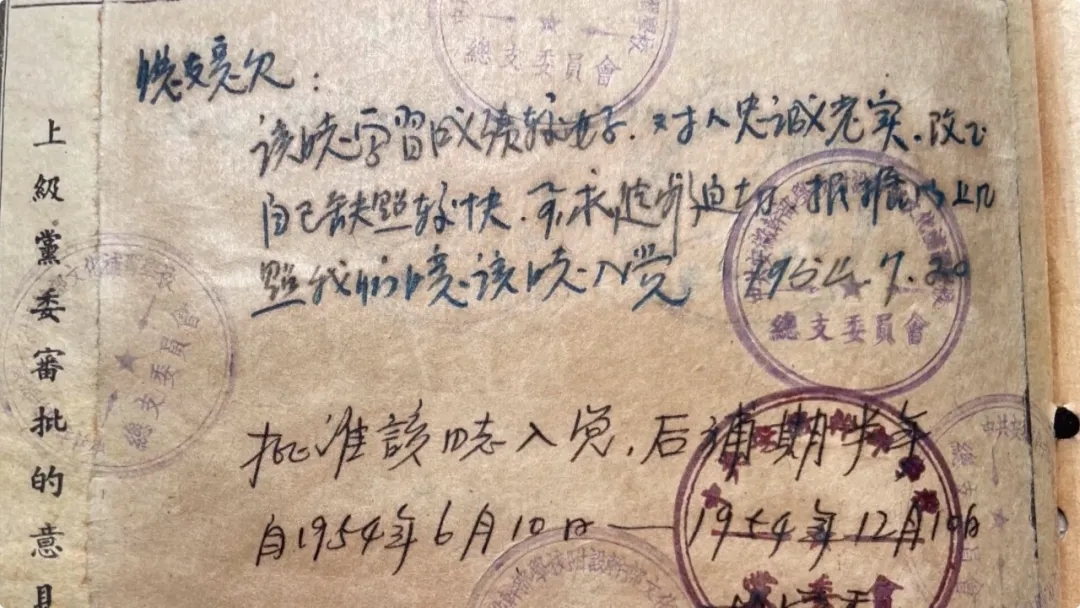 上級黨委審批的意見
總支意见:
该同志学習成绩较好.对人忠诚老实.改正
自己缺點较快.要求進步迫切.根據以上几
點我们同意该同志入党 1954.7.20
總支委員會
總支委員會
總支委員會
批准該同志入党,后補期半年
自1954年6月10日——1954年12月10日
黨委會